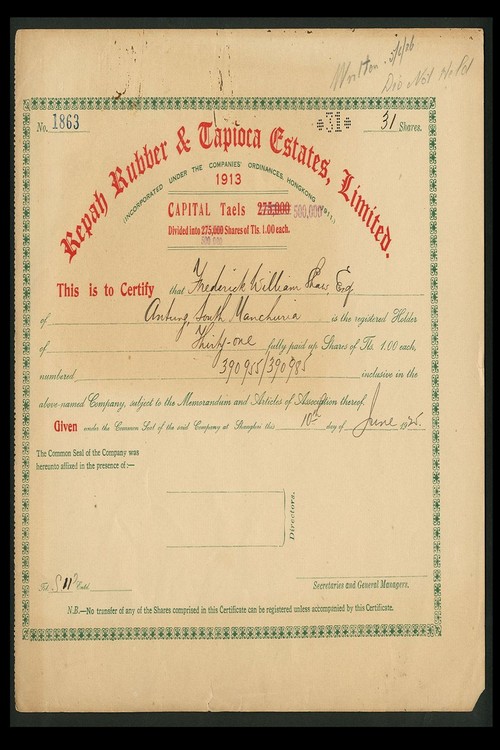 5/6/26
No. 1863
*31*
31 Shares.
Repah Rubber & Tapioca Estates, Limited.
(INCORPORATED UNDER THE COMPANIES' ORDINANCES, HONGKONG 1911.)
1913
CAPITAL Taels 275,000 500,000
Divided into 275,000 Shares of Tls. 1.00 each.
500,000
This is to Certify that Frederick William Shaw, Esq
of Antung, South Manchuria is the registered Holder
of Thirty-one fully paid up Shares of Tls. 1.00 each,
numbered 390955/390985 inclusive in the
above-named Company, subject to the Memorandum and Articles of Association thereof.
Given under the Common Seal of the said Company at Shanghai this 10th day of June 1925.
The Common Seal of the Company was
hereunto affixed in the presence of:—
Directors.
Secretaries and General Managers.
N.B.—No transfer of any of the Shares comprised in this Certificate can be registered unless accompanied by this Certificate.